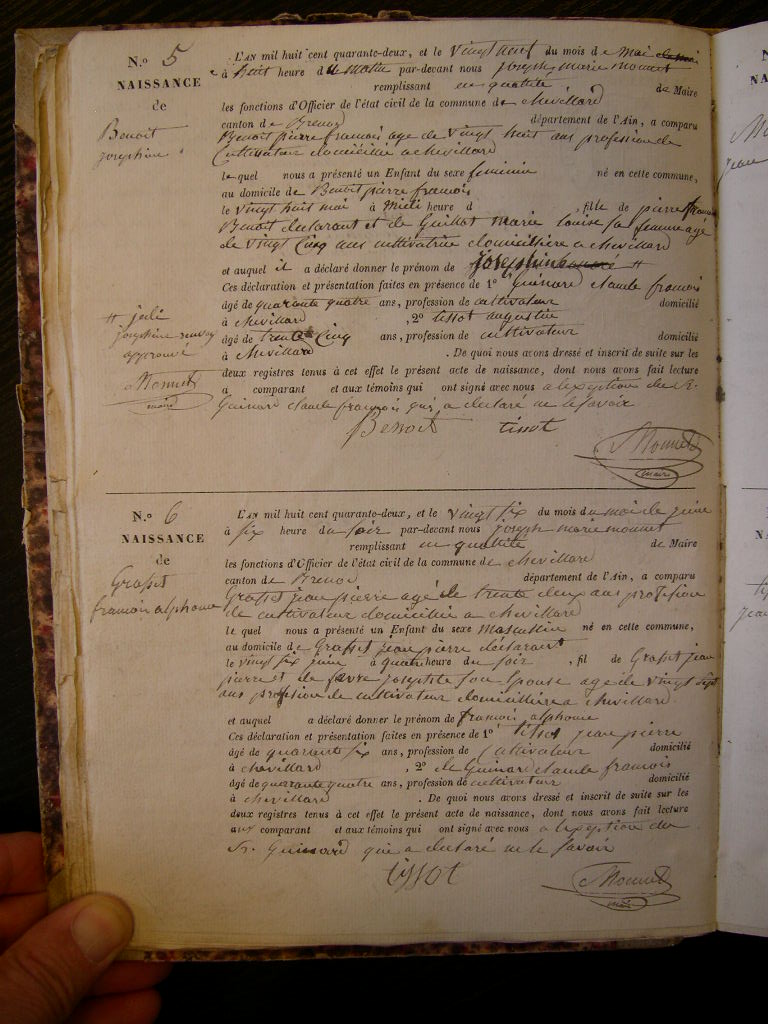 N.o 5
NAISSANCE
de
Benoit
josephine
L'AN mil huit cent quarante-deux, et le vingt neuf du mois de mai
à huit heure du matin par-devant nous joseph marie monnet
remplissant en qualité de Maire
les fonctions d'Officier de l'état civil de la commune de chevillard
canton de Brenod département de l'Ain, a comparu
Benoit pierre francois age de vingt huit ans profession de
Cultivateur domicilié a chevillard
le quel nous a présenté un Enfant du sexe feminin né en cette commune,
au domicile de Benoit pierre francois
le vingt huit mai à midi heure d , fille de pierre francois
Benoit declarant et de Guillot marie louise sa femme agé
de vingt cinq ans cultivatrice domicilière a chevillard
et auquel il a déclaré donner le prénom de josephine #
Ces déclaration et présentation faites en présence de 1° Guinard claude francois
âgé de quarante quatre ans, profession de cultivateur domicilié
à chevillard , 2° tissot augustin
âgé de trente Cinq ans, profession de cultivateur domicilié
à chevillard . De quoi nous avons dressé et inscrit de suite sur les
deux registres tenus à cet effet le présent acte de naissance, dont nous avons fait lecture
à comparant et aux témoins qui ont signé avec nous a lexeption du Sr
Guinard claude francois qui a declaré ne le savoir
# julie
josephine renvoy
approuvé
Monnet
maire
Benoit tissot
Monnet
maire
N.o 6
NAISSANCE
de
Grasset
francois alphonse
L'AN mil huit cent quarante-deux, et le vingt six du mois du mois de juin
à six heure du soir par-decant nous joseph marie monnet
remplissant en qualité de Maire
les fonctions d'Officier de l'état civil de la commune de chevillard
canton de Brenod département de l'Ain, a comparu
Grasset jean pierre agé de trente deux ans profession
de cultivateur domicilié a chevillard
le quel nous a présenté un Enfant du sexe masculin né en cette commune,
au domicile de Grasset jean pierre declarant
le vingt six juin à quatre heure du soir , fil de Grasset jean
pierre et de favre josephte son Epouse age de vingt sept
ans profession de cultivateur domicilière a chevillard
et auquel a déclaré donner le prénom de francois alphonse
Ces déclaration et présentation faites en présence de 1° tissot jean pierre
âgé de quarante six ans, profession de Cultivateur domicilié
à chevillard , 2° de Guinard claude francois
âgé de quarante quatre ans, profession de cultivateur domicilié
à chevillard . De quoi nous avons dressé et inscrit de suite sur les
deux registres tenus à cet effet le présent acte de naissance, dont nous avons fait lecture
aux comparant et aux témoins qui ont signé avec nous a lexeption du
Sr. Guinard qui a declaré ne le savoir
tissot
Monnet
maire